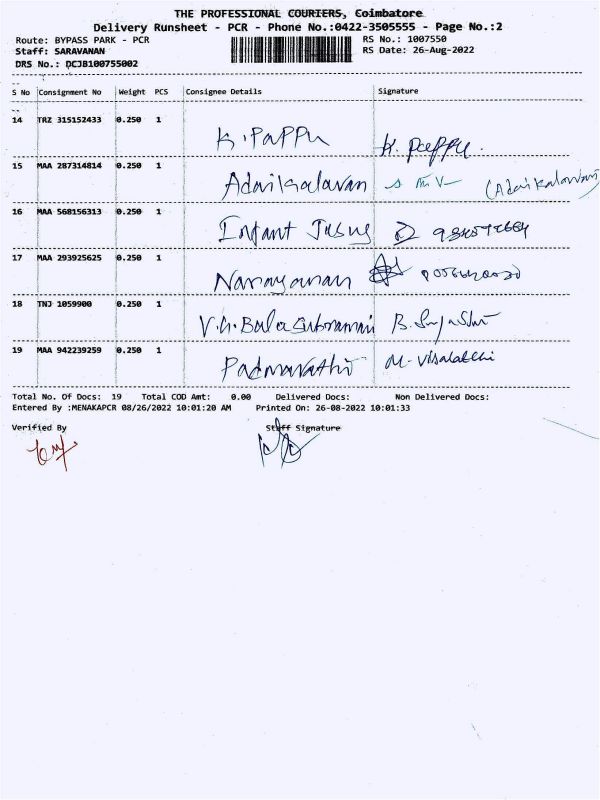 THE PROFESSIONAL COURIERS, Coimbatore
Delivery Runsheet - PCR - Phone No.:0422-3505555 - Page No.:2
Route: BYPASS PARK - PCR RS No.: 1007550
Staff: SARAVANAN RS Date: 26-Aug-2022
DRS No.: DCJB100755002
S No Consignment No Weight PCS Consignee Details Signature
14 TRZ 315152433 0.250 1 K.PAPPU K. Pappu.
15 MAA 287314814 0.250 1 Adaikalavan (Adaikalavan)
16 MAA 568156313 0.250 1 Infant Jesus
17 MAA 293925625 0.250 1 Narayanan
18 TNJ 1059900 0.250 1 V.G.Balasubramani
19 MAA 942239259 0.250 1 Padmavathi M. Visalatchi
Total No. Of Docs: 19 Total COD Amt: 0.00 Delivered Docs: Non Delivered Docs:
Entered By :MENAKAPCR 08/26/2022 10:01:20 AM Printed On: 26-08-2022 10:01:33
Verified By Staff Signature